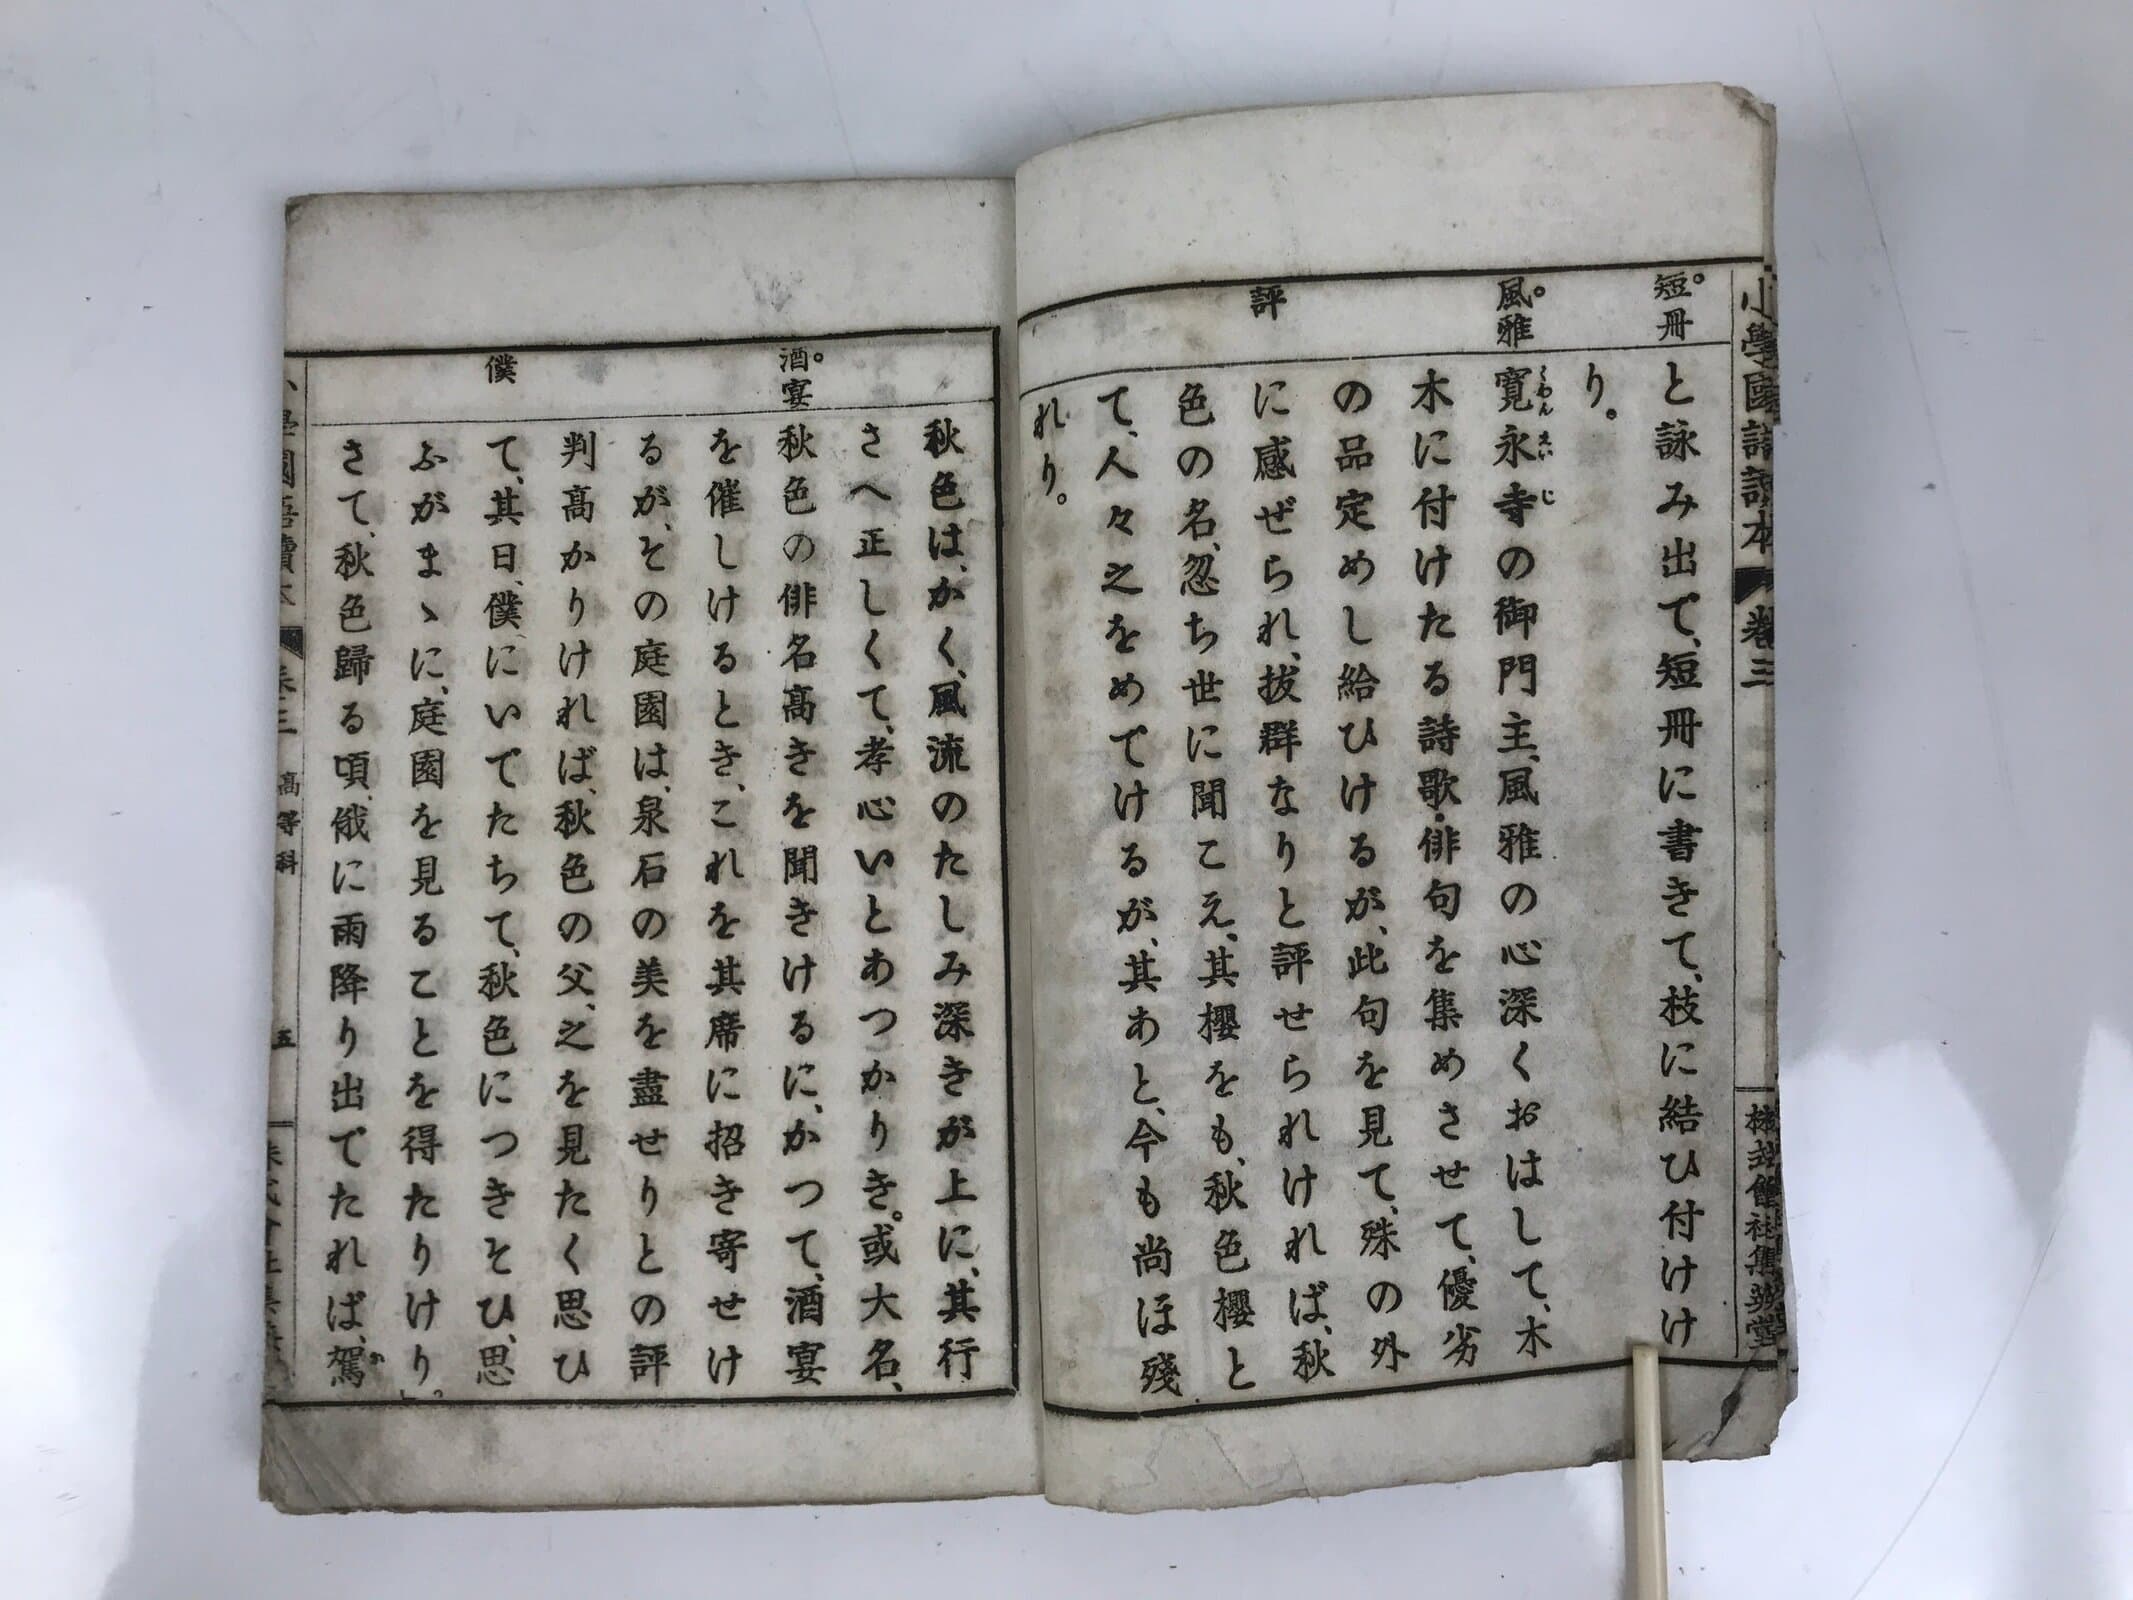 小學國語讀本 卷三
短冊
風雅
評
と詠み出で、短冊に書きて、枝に結ひ付けけ
り。
寛永寺の御門主、風雅の心深くおはして、木
くわんえいじ
木に付けたる詩歌・俳句を集めさせて、優劣
の品定めし給ひけるが、此句を見て、殊の外
に感ぜられ、拔群なりと評せられければ、秋
色の名、忽ち世に聞こえ、其櫻をも、秋色櫻と
て、人々之をめでけるが、其あと、今も尚ほ殘
れり。
酒宴
僕
秋色は、かく、風流のたしみ深きが上に、其行
さへ正しくて、孝心いとあつかりき。或大名、
秋色の俳名高きを聞きけるに、かつて、酒宴
を催しけるとき、これを其席に招き寄せけ
るが、その庭園は、泉石の美を盡せりとの評
判高かりければ、秋色の父、之を見たく思ひ
て、其日、僕にいでたちて、秋色につきそひ、思
ふがまゝに、庭園を見ることを得たりけり。
さて、秋色歸る頃、俄に雨降り出でたれば、駕
か
高等科
五